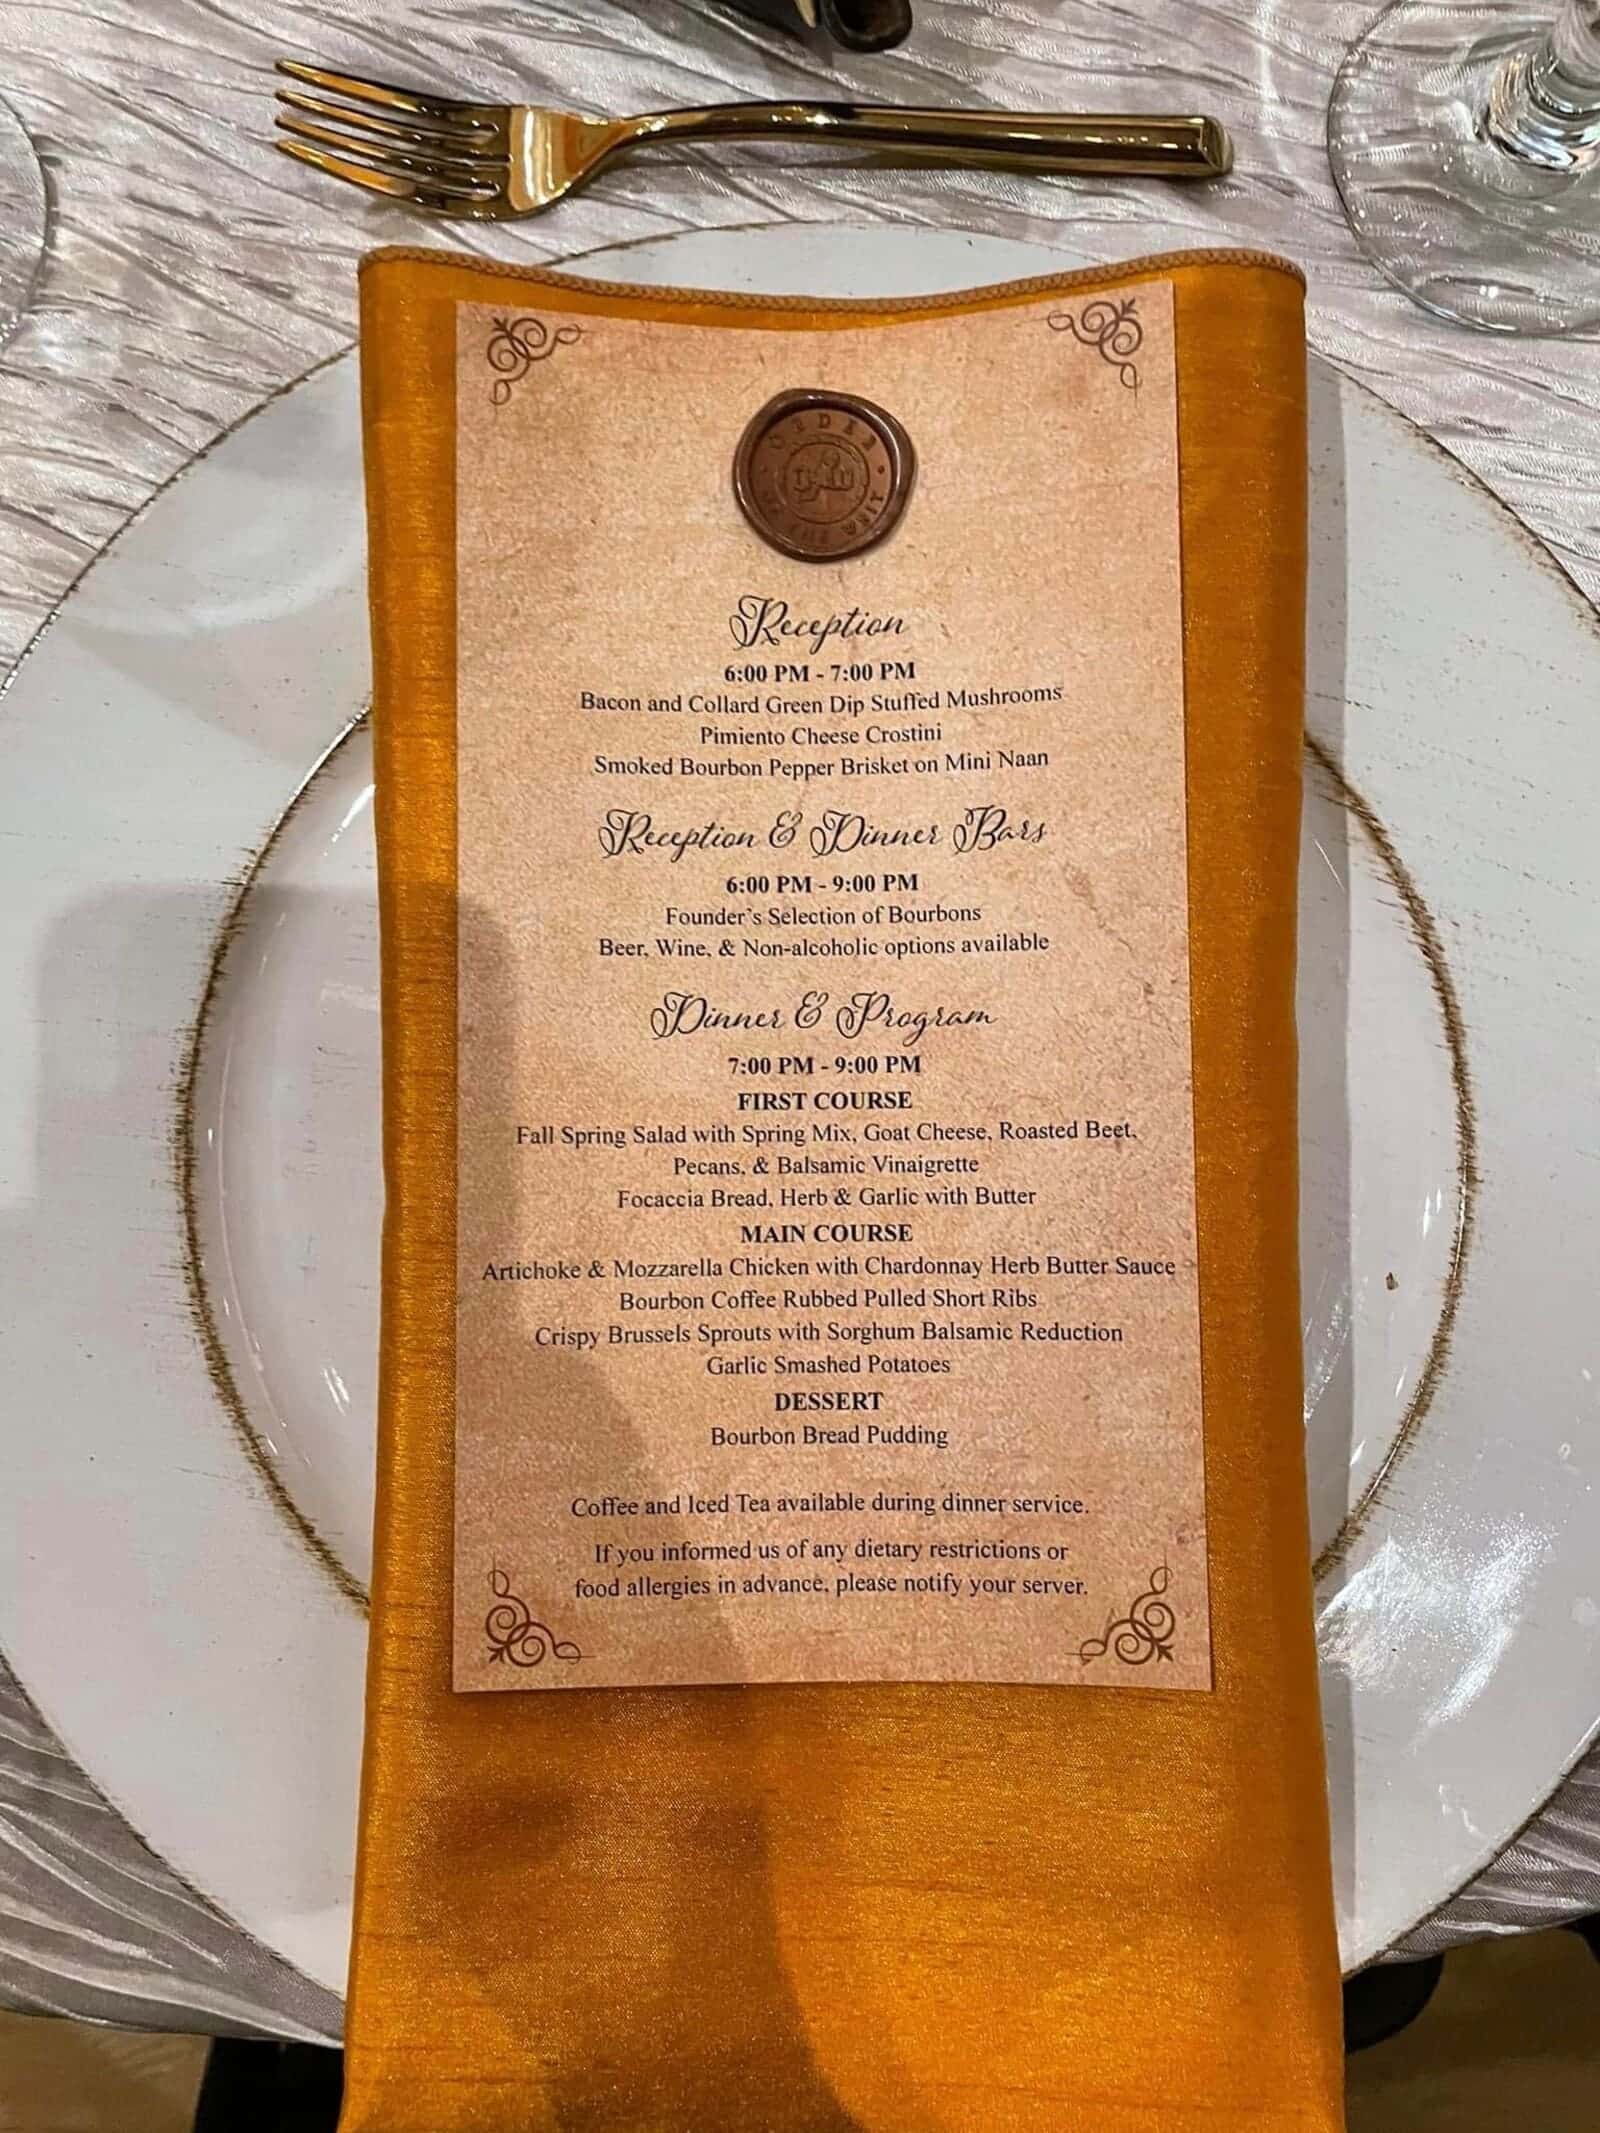 ORDER
Reception
6:00 PM - 7:00 PM
Bacon and Collard Green Dip Stuffed Mushrooms
Pimiento Cheese Crostini
Smoked Bourbon Pepper Brisket on Mini Naan
Reception & Dinner Bars
6:00 PM - 9:00 PM
Founder's Selection of Bourbons
Beer, Wine, & Non-alcoholic options available
Dinner & Program
7:00 PM - 9:00 PM
FIRST COURSE
Fall Spring Salad with Spring Mix, Goat Cheese, Roasted Beet,
Pecans, & Balsamic Vinaigrette
Focaccia Bread, Herb & Garlic with Butter
MAIN COURSE
Artichoke & Mozzarella Chicken with Chardonnay Herb Butter Sauce
Bourbon Coffee Rubbed Pulled Short Ribs
Crispy Brussels Sprouts with Sorghum Balsamic Reduction
Garlic Smashed Potatoes
DESSERT
Bourbon Bread Pudding
Coffee and Iced Tea available during dinner service.
If you informed us of any dietary restrictions or
food allergies in advance, please notify your server.